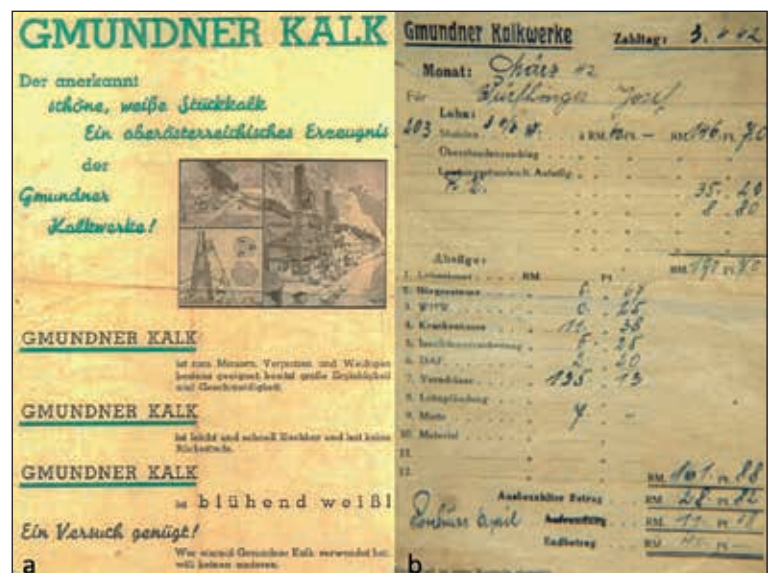 GMUNDNER KALK
Der anerkannt
schöne, weiße Stückkalk
Ein oberösterreichisches Erzeugnis
der
Gmundner
Kalkwerke!
GMUNDNER KALK
ist zum Mauern, Verputzen und Weißigen
bestens geeignet besitzt große Ergiebigkeit
und Geschmeidigkeit
GMUNDNER KALK
ist leicht und schnell löschbar und hat keine
Rückstände.
GMUNDNER KALK
ist blühend weiß!
Ein Versuch genügt!
Wer einmal Gmundner Kalk verwendet hat,
will keinen anderen.
a
Gmundner Kalkwerke Zahltag: 3. 4 42
Monat: März 42
Für Josef
Lohn:
203 Stunden à RM. Pf. — RM. 146. Pf.
Überstundenzuschlag
35. 20
8. 80
RM. 190 Pf.
Abzüge:
1. Lohnsteuer RM. Pf.
2. Bürgersteuer
3. WHW. 0. 25
4. Krankenkasse 11. 38
5. Invalidenversicherung 5. 28
6. DAF. 2. 20
7. Vorschüsse 135. 13
8. Lohnpfändung
9. Miete 7 —
10. Material
11.
12.
RM. 161. Pf. 88
Ausbezahlter Betrag RM. 28. Pf. 82
April RM. 11. Pf. 18
Endbetrag RM. Pf. —
b